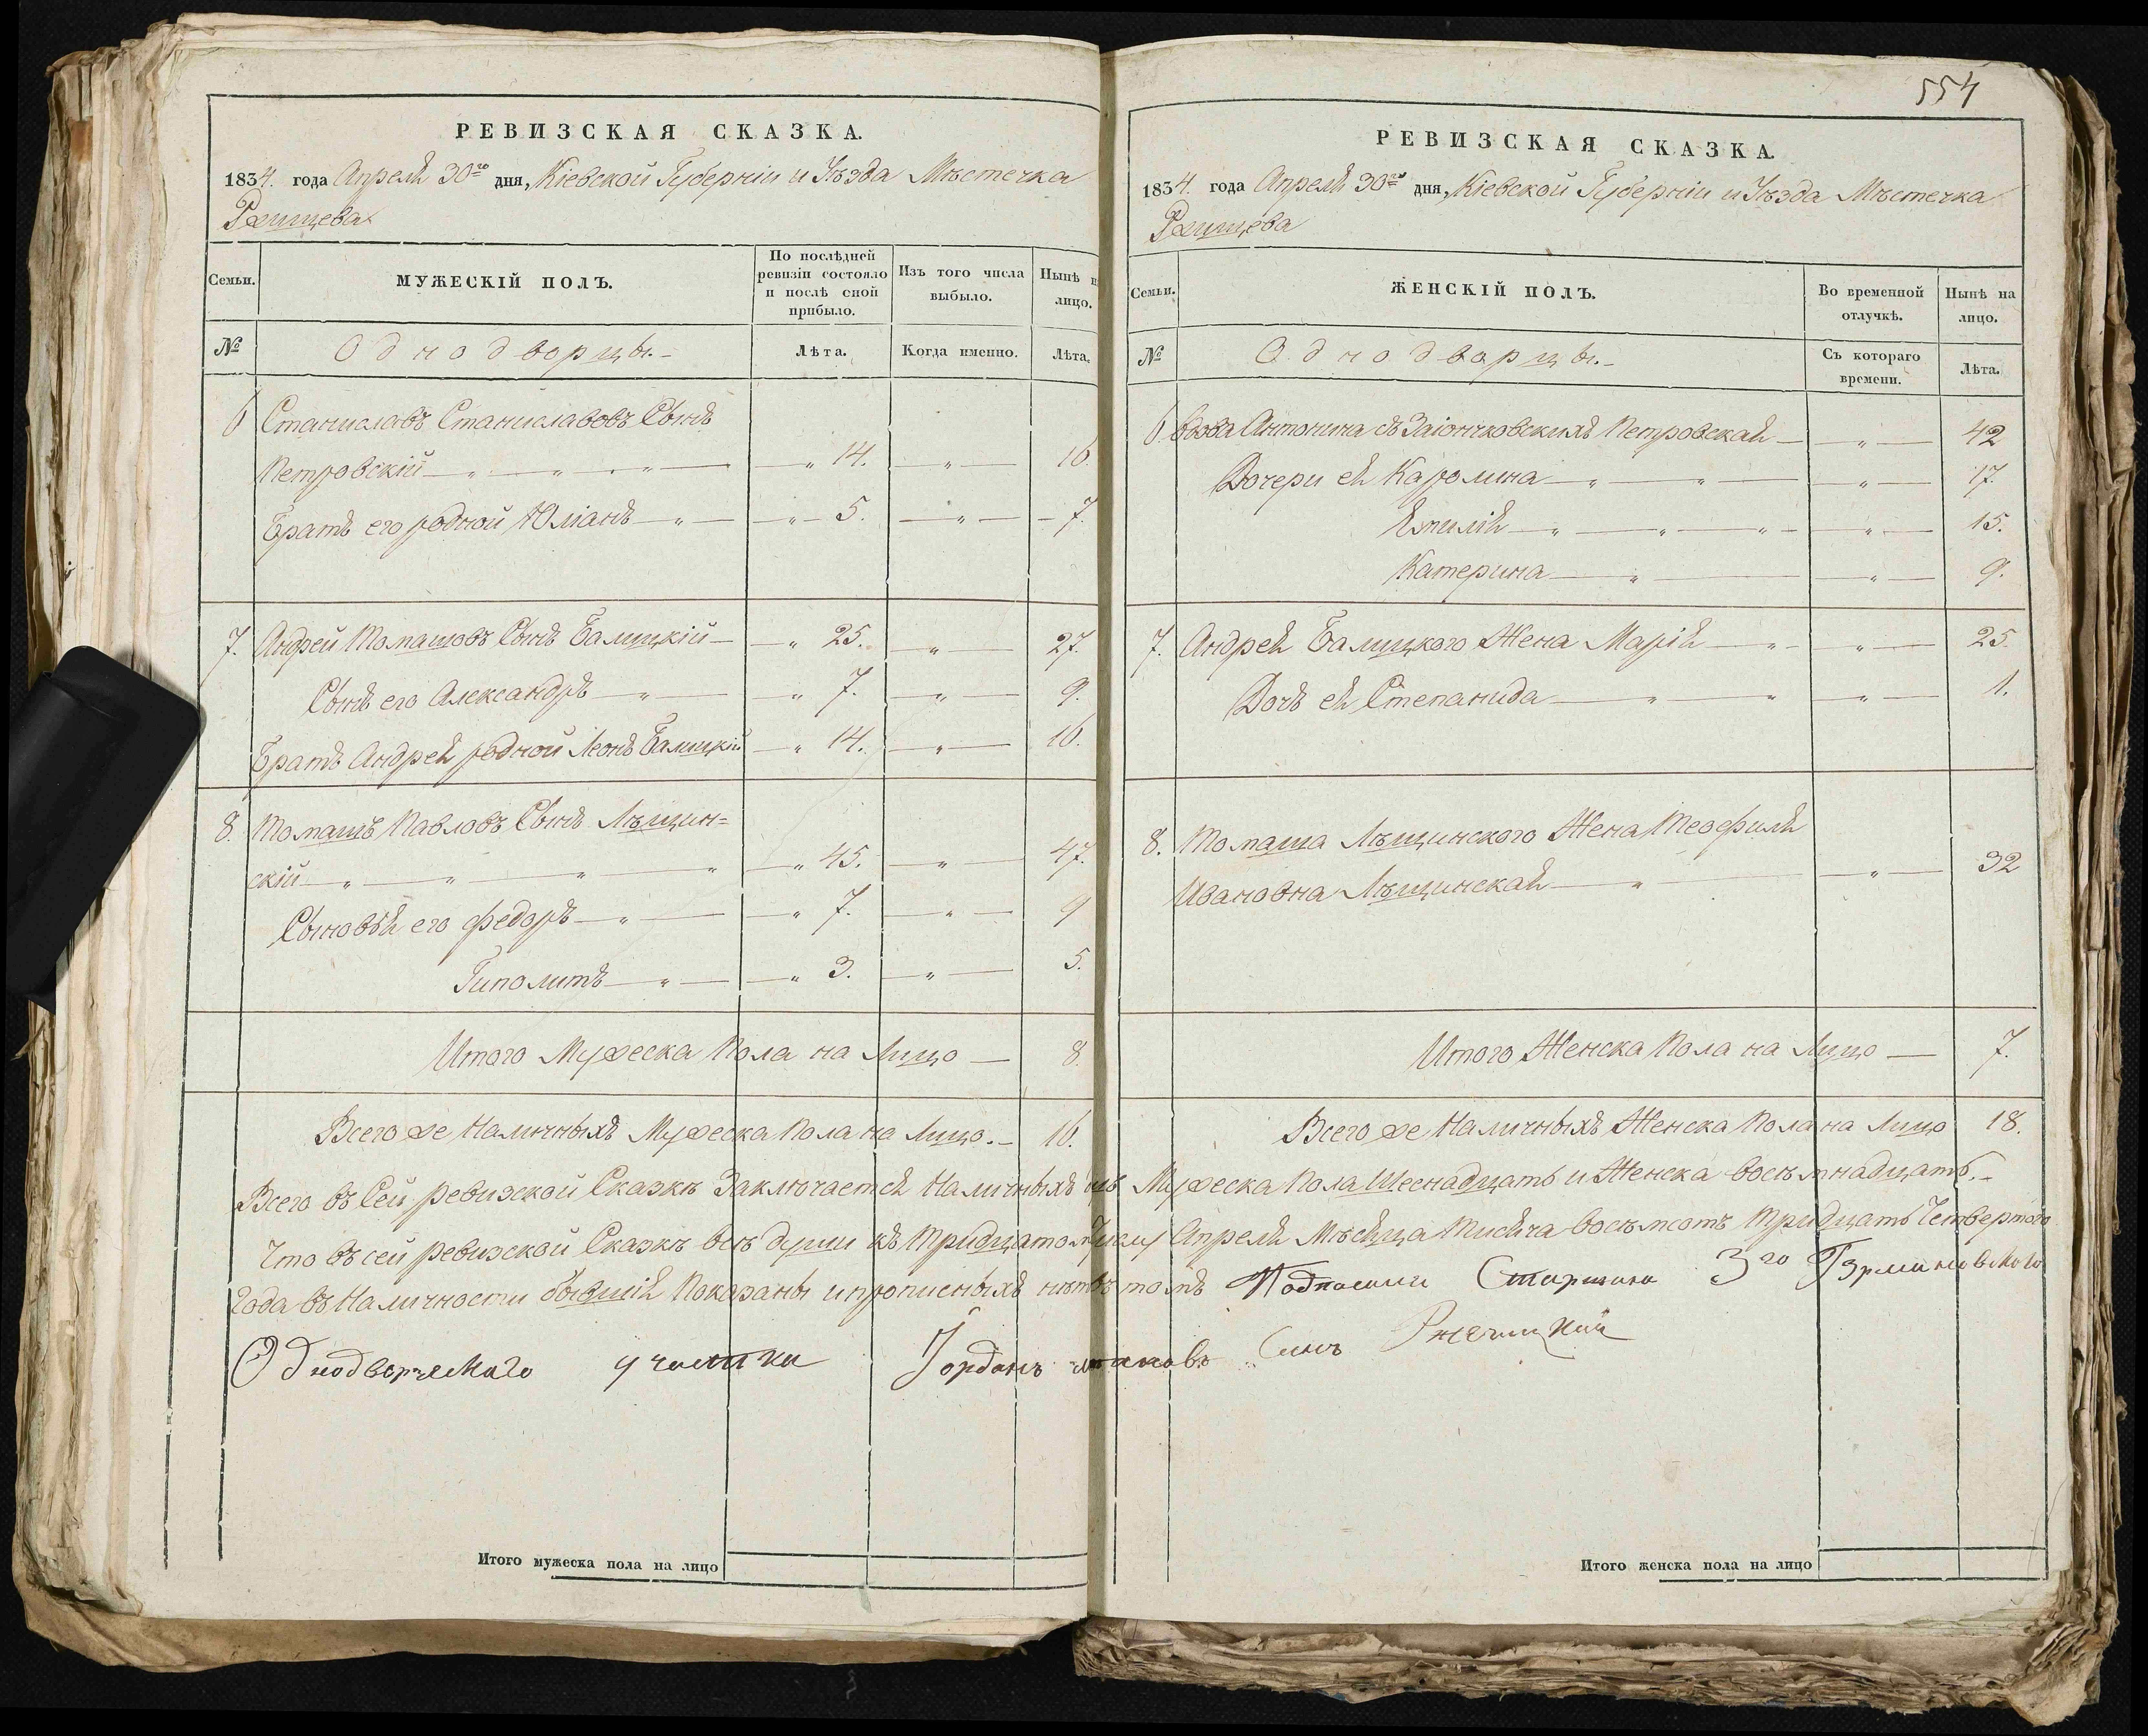 РЕВИЗСКАЯ СКАЗКА.
1834. года Апреля 30го дня, Кіевской Губерніи и Уѣзда Мѣстечка
Ржищева
Семьи.
МУЖЕСКІЙ ПОЛЪ.
По послѣдней
ревизіи состояло
и послѣ оной
прибыло.
Изъ того числа
выбыло.
Нынѣ н
лицо.
№
Однодворцы.
Лѣта.
Когда именно.
Лѣта.
6 Станиславъ Станиславовъ Сынъ
Петровскій " 14. " 16.
Братъ его родной Юліанъ " 5. " 7.
7. Андрей Томашовъ Сынъ Балицкій " 25. " 27.
Сынъ его Александръ " 7. " 9.
Братъ Андрея родной Леонъ Балицкій " 14. " 16.
8. Томашъ Павловъ Сынъ Лѣщин=
скій " 45. " 47.
Сыновья его Федоръ " 7. " 9
Гиполитъ " 3. " 5.
Итого Мужеска Пола на Лицо 8.
Всего же Наличныхъ Мужеска Пола на Лицо. 16.
554
РЕВИЗСКАЯ СКАЗКА.
1834. года Апреля 30го дня, Кіевской Губерніи и Уѣзда Мѣстечка
Ржищева
Семьи.
ЖЕНСКІЙ ПОЛЪ.
Во временной
отлучкѣ.
Нынѣ на
лицо.
№
Однодворцы.
Съ котораго
времени.
Лѣта.
6. Вдова Антонина съ Заіончковскихъ Петровская " 42
Дочери ея Каролина " 17.
Емилія " 15.
Катерина " 9.
7. Андрея Балицкого Жена Марія " 25.
Дочь ея Степанида " 1.
8. Томаша Лѣщинского Жена Теофиля
Ивановна Лѣщинская " 32
Итого Женска Пола на Лицо 7.
Всего же Наличныхъ Женска Пола на Лицо 18.
Всего въ Сей ревизской Сказкѣ Заключается Наличныхъ Мужеска Пола Шеснадцать и Женска восѣмнадцать.
Что въ сей ревизской Сказкѣ всѣ души къ Тридцатому Числу Апреля Мѣсяца Тисяча восѣмсотъ Тридцать Четвертого
Года въ Наличности бывшія Показаны и прописныхъ нѣтъ въ томъ Подписми Старшина 3го Гэрмановского
Однодворческаго участка Іорданъ Синъ Ржечицкий
Итого мужеска пола на лицо
Итого женска пола на лицо